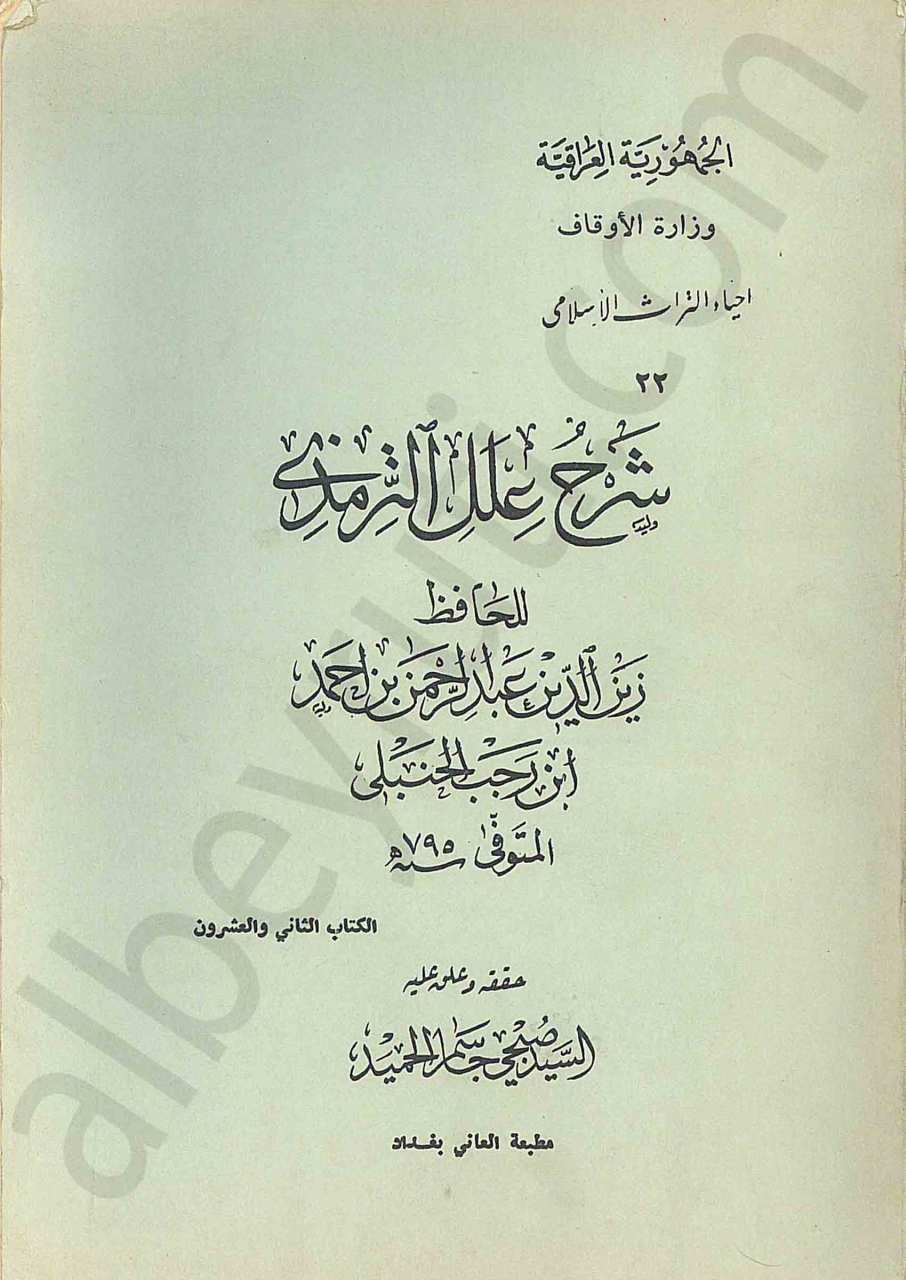 الجُمْهُوْرِيَّة العِرَاقِيَّة
وزارة الأوقاف
احياء التراث الإسلامي
٢٢
شَرْحُ عِلَلِ الترمِذِي
وليد
للحَافظ
زين الدّين عَبد الرحمن بن احمد
وليد
ابن رَجَب الحنبَلي
المتوفى سنة ٧٩٥ھ
الكتاب الثاني والعشرون
حققه وعلق عليه
السَّيد صُبحي جَاسم الحميد
مطبعة العاني بغداد
albeyruti.com